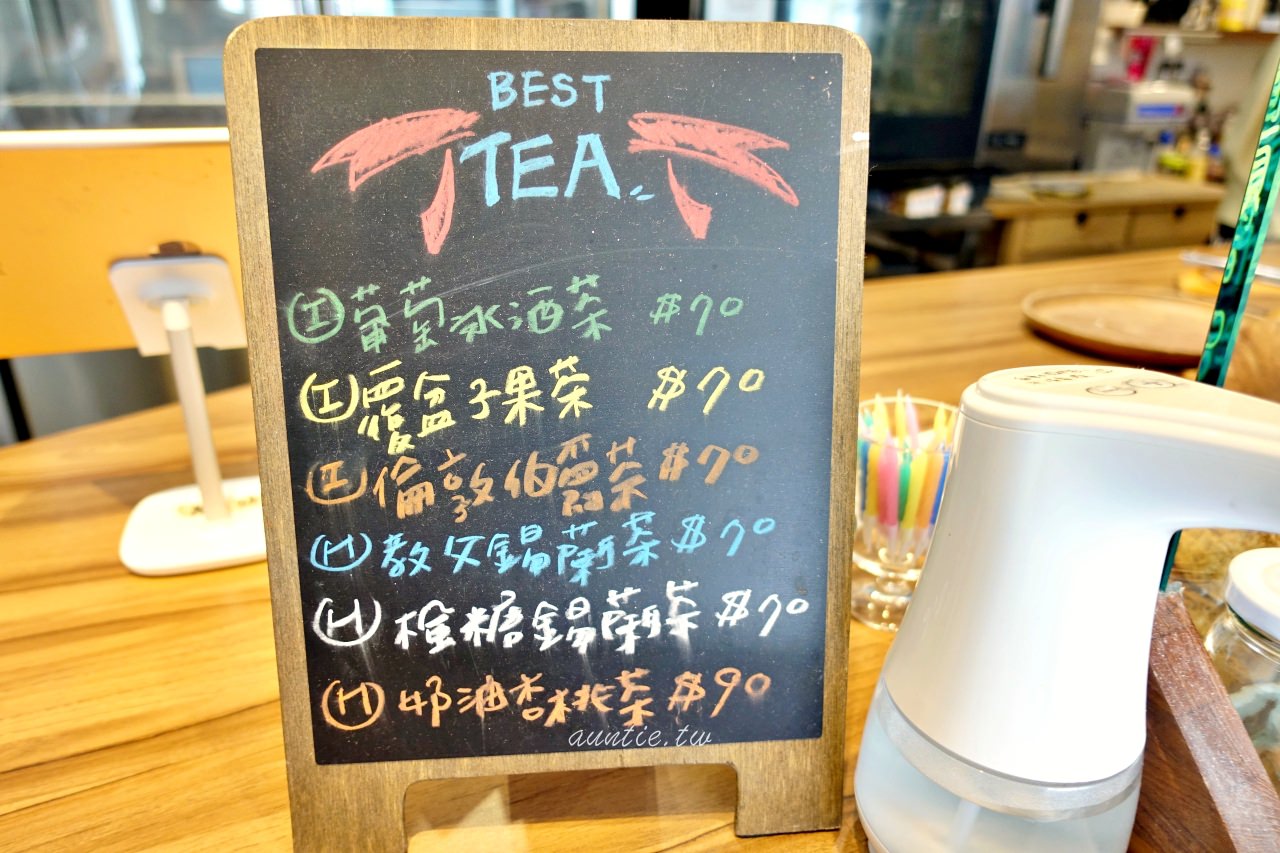 BEST
TEA
I 葡萄冰酒茶 $70
I 覆盆子果茶 $70
I 倫敦伯爵茶 $70
H 教父錫蘭茶 $70
H 楓糖錫蘭茶 $70
H 奶油杏桃茶 $90
auntie.tw